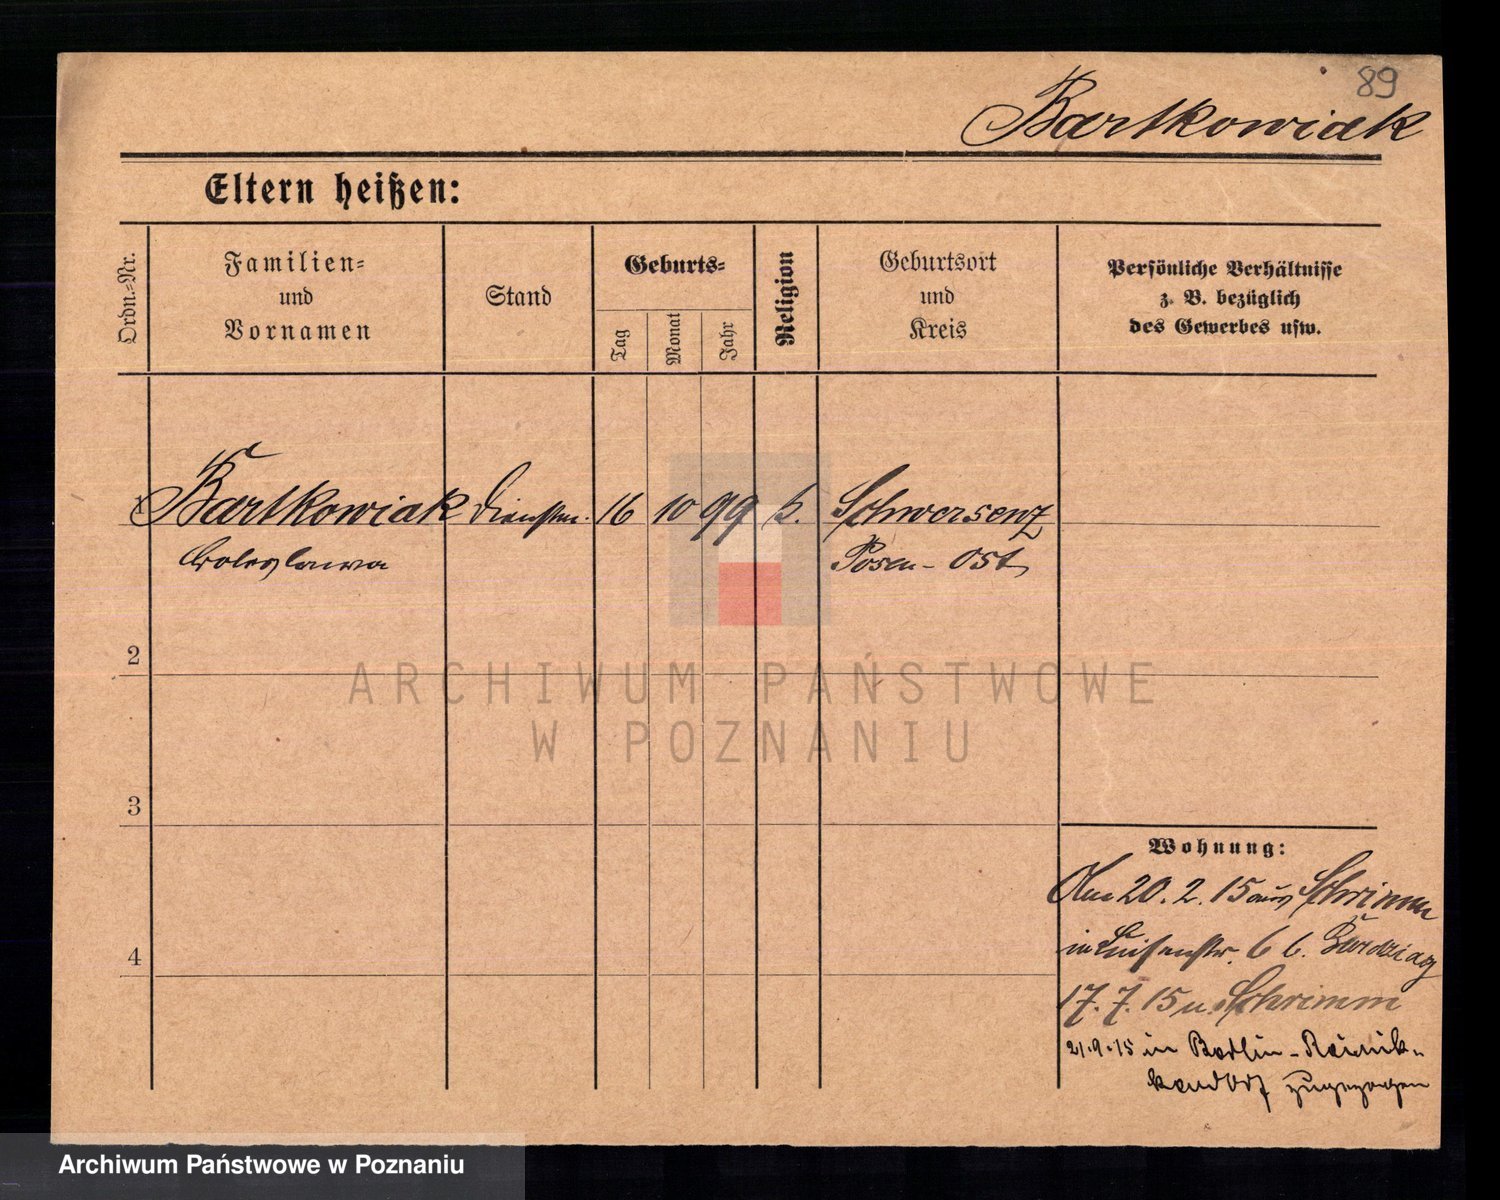 89
Bartkowiak
Eltern heißen:
Ordn.-Nr.
Familien-
und
Vornamen
Stand
Geburts-
Tag
Monat
Jahr
Religion
Geburtsort
und
Kreis
Persönliche Verhältnisse
z. B. bezüglich
des Gewerbes usw.
1 Bartkowiak Dienstm. 16 10 99 k. Schwersenz
Boleslawa Posen-Ost
2
ARCHIWUM PAŃSTWOWE
W POZNANIU
3
Wohnung:
Am 20. 2. 15 aus Schrimm
in Luisenstr. 6 b.
4
17. 7. 15 n. Schrimm
21.9.15 in Berlin-Reinik-
kendorf zugezogen
Archiwum Państwowe w Poznaniu